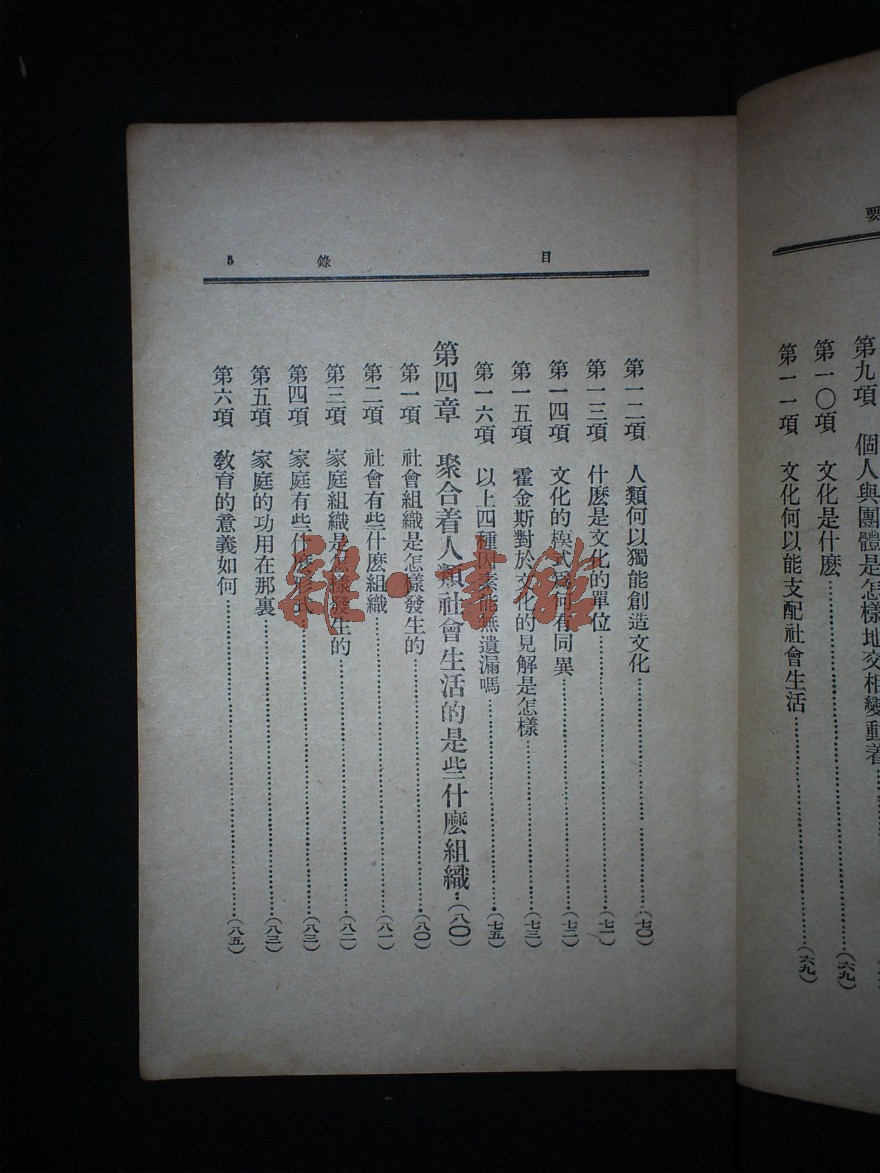 要
第九項　個人與團體是怎樣地交相變動着
第一〇項　文化是什麽……(六九)
第一一項　文化何以能支配社會生活……(六九)
目　錄　5
第一二項　人類何以獨能創造文化……(七〇)
第一三項　什麽是文化的單位……(七一)
第一四項　文化的模式爲何有同異……(七二)
第一五項　霍金斯對於文化的見解是怎樣……(七三)
第一六項　以上四種因素能無遺漏嗎……(七五)
第四章　聚合着人類社會生活的是些什麽組織…(八〇)
第一項　社會組織是怎樣發生的……(八〇)
第二項　社會有些什麽組織……(八一)
第三項　家庭組織是怎樣發生的……(八二)
第四項　家庭有些什麽形式……(八三)
第五項　家庭的功用在那裏……(八三)
第六項　敎育的意義如何……(八五)
雜·書館